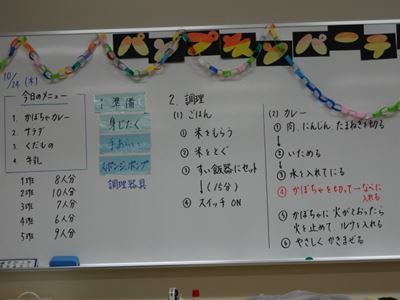 パンプキンパーティ
10/24 (木)
今日のメニュー
1. かぼちゃカレー
2. サラダ
3. くだもの
4. 牛乳
1班 8人分
2班 10人分
3班 7人分
4班 6人分
5班 9人分
1. 準備
身じたく
手あらい
スポンジ、ポンプ
調理器具
2. 調理
(1) ごはん
① 米をもらう
② 米をとぐ
③ すい飯器にセット
↓ (15分)
④ スイッチ ON
(2) カレー
① 肉 にんじん たまねぎを切る
↓
② いためる
↓
③ 水を入れてにる
④ かぼちゃを切って→なべに
入れる
⑤ かぼちゃに火がとおったら
火を止めて ルウを入れる
⑥ やさしく かきまぜる